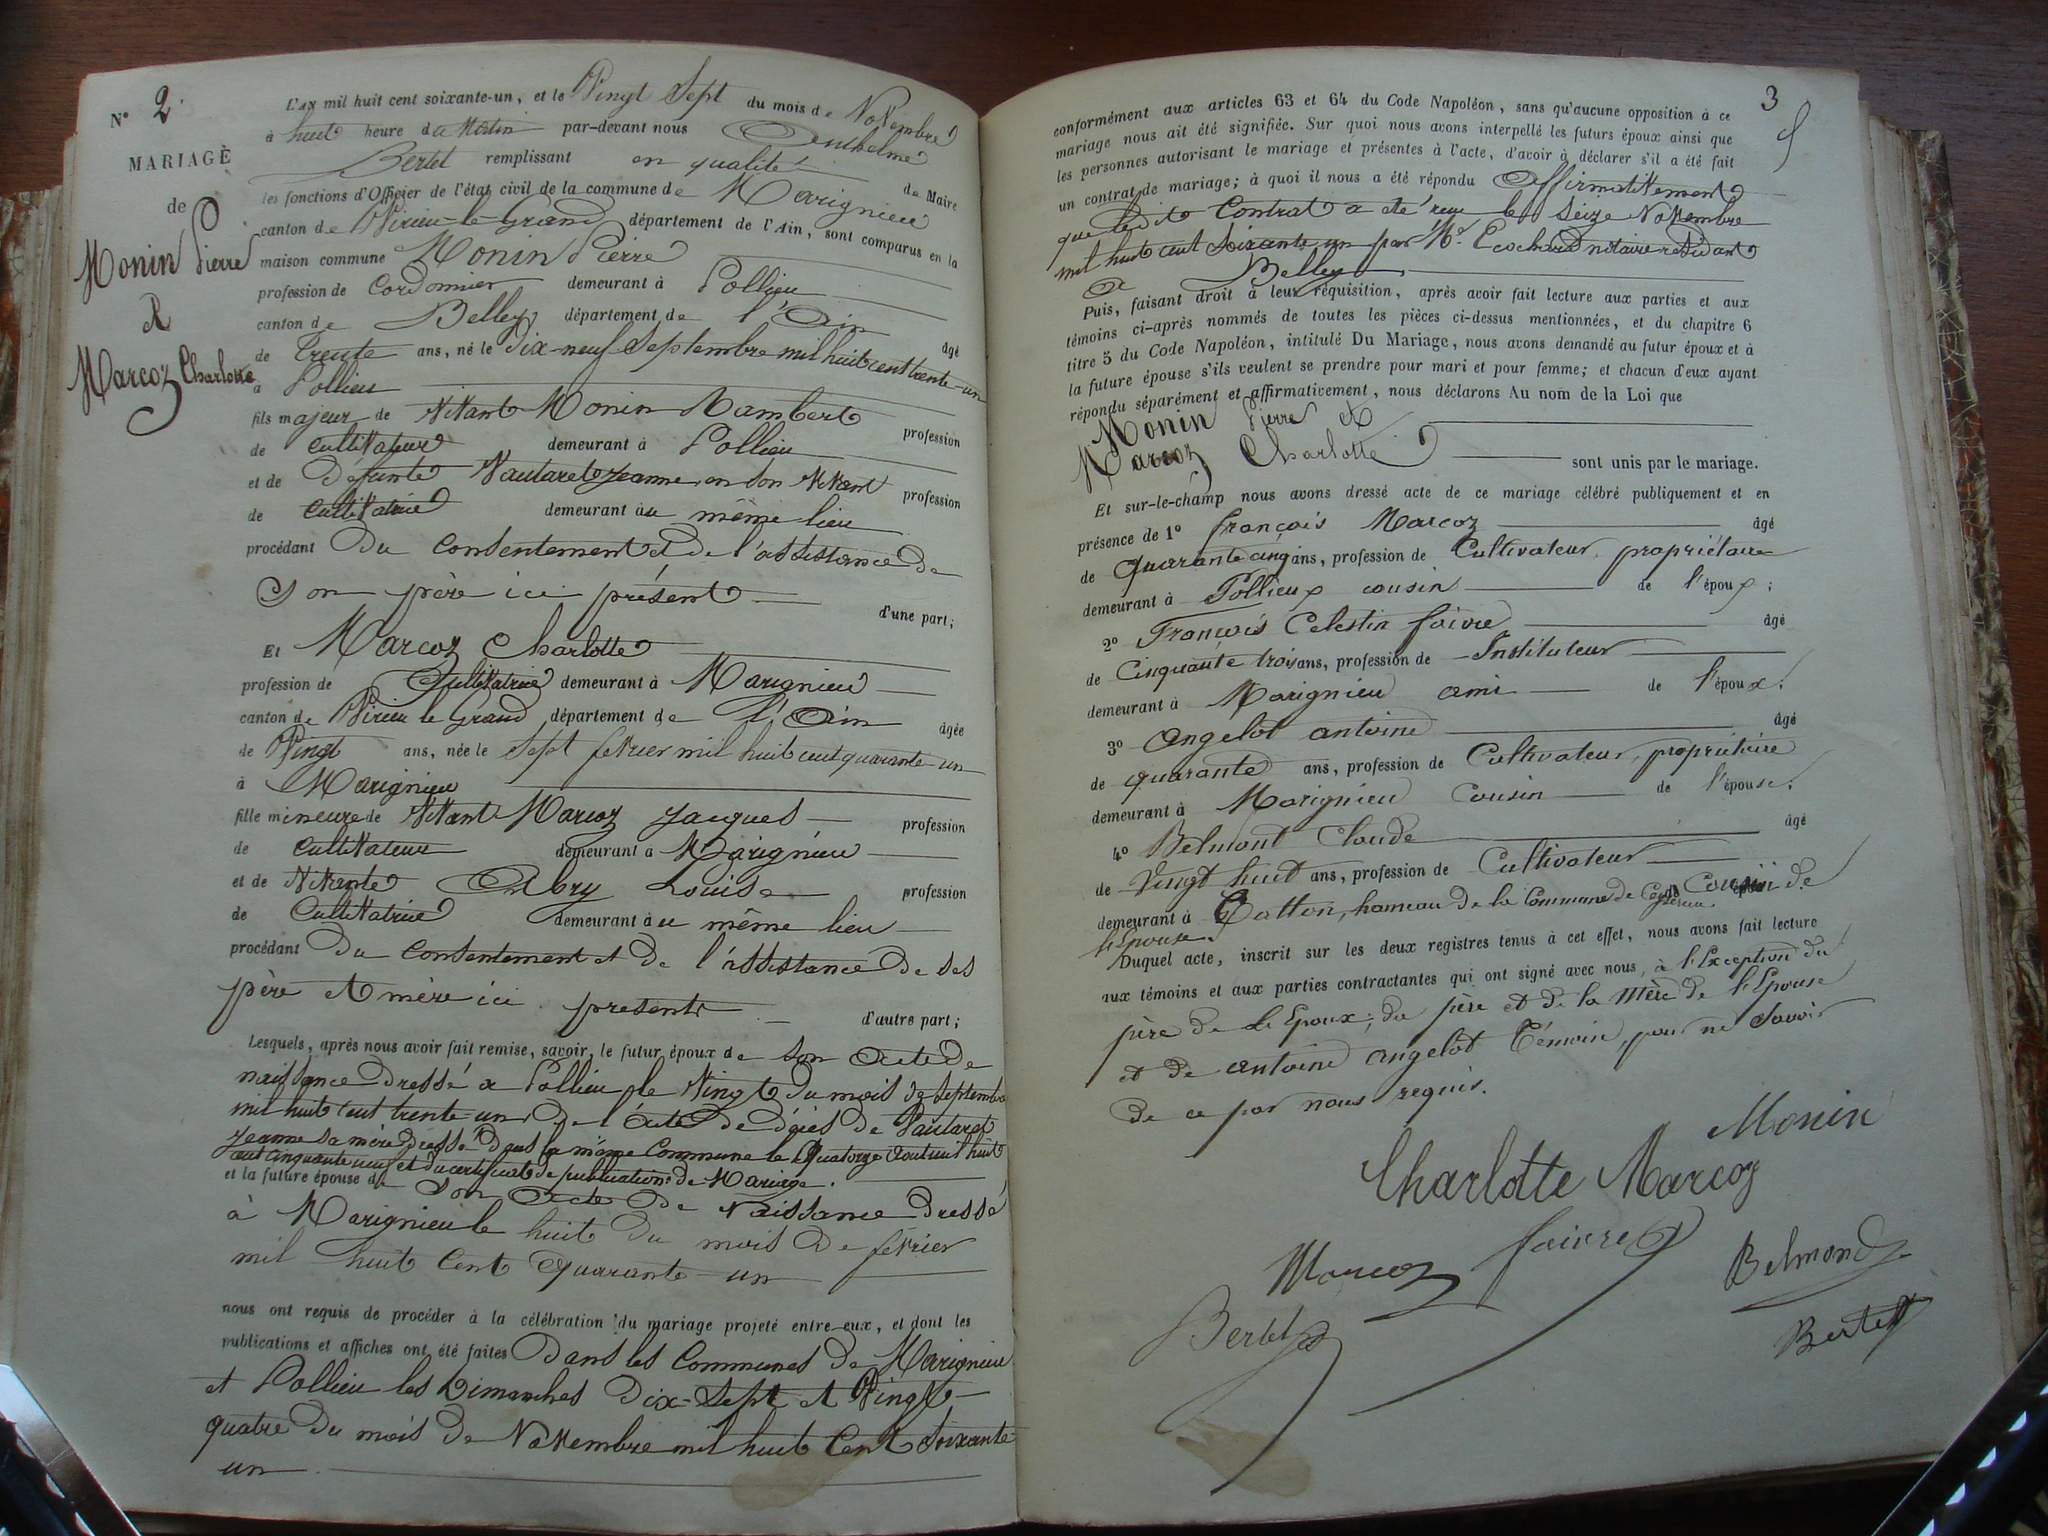 N° 2
MARIAGE
de
Monin Pierre
&
Marcoz Charlotte
L'an mil huit cent soixante-un, et le Vingt Sept du mois de Novembre
à huit heure du Matin par-devant nous Anthelme
Bertet remplissant en qualité de Maire
les fonctions d'Officier de l'état civil de la commune de Marignieu
canton de Virieu-le-Grand département de l'Ain, sont comparus en la
maison commune Monin Pierre
profession de Cordonnier demeurant à Pollieu
canton de Belley département de l'Ain âgé
de Trente ans, né le Dix-neuf Septembre mil huit cent trente-un
à Pollieu
fils majeur de Vivant Monin Rambert profession
de Cultivateur demeurant à Pollieu
et de Défunte Vautaret Jeanne, en son Vivant profession
de Cultivatrice demeurant au même lieu
procédant Du Consentement et de l'assistance de
Son père ici présent d'une part;
Et Marcoz Charlotte
profession de Cultivatrice demeurant à Marignieu
canton de Virieu le Grand département de l'Ain âgée
de Vingt ans, née le Sept février mil huit cent quarante-un
à Marignieu
fille mineure de Vivant Marcoz Jacques profession
de Cultivateur demeurant à Marignieu
et de Vivante Aubry Louise profession
de Cultivatrice demeurant au même lieu
procédant Du Consentement et de l'assistance de ses
père et mère ici présents d'autre part;
Lesquels, après nous avoir fait remise, savoir, le futur époux de Son Acte de
naissance Dressé à Pollieu le Vingt du mois de Septembre
mil huit cent trente-un de l'Acte de décès de Vautaret
Jeanne sa mère dressé dans la même Commune le Quatorze Aout mil huit
cent cinquante neuf et du certificat de publications de Mariage.
et la future épouse de Son Acte de Naissance Dressé
à Marignieu le huit du mois de février
mil huit Cent Quarante-un
nous ont requis de procéder à la célébration du mariage projeté entre eux, et dont les
publications et affiches ont été faites Dans les Communes de Marignieu
et Pollieu les Dimanches Dix-Sept et Vingt-
quatre du mois de Novembre mil huit Cent Soixante
un
3
conformément aux articles 63 et 64 du Code Napoléon, sans qu'aucune opposition à ce
mariage nous ait été signifiée. Sur quoi nous avons interpellé les futurs époux ainsi que
les personnes autorisant le mariage et présentes à l'acte, d'avoir à déclarer s'il a été fait
un contrat de mariage; à quoi il nous a été répondu Affirmativement
que ledit Contrat a été reçu le Seize Novembre
mil huit cent Soixante un par Me Ecochard notaire résidant
à Belley
Puis, faisant droit à leur réquisition, après avoir fait lecture aux parties et aux
témoins ci-après nommés de toutes les pièces ci-dessus mentionnées, et du chapitre 6
titre 5 du Code Napoléon, intitulé Du Mariage, nous avons demandé au futur époux et à
la future épouse s'ils veulent se prendre pour mari et pour femme; et chacun d'eux ayant
répondu séparément et affirmativement, nous déclarons Au nom de la Loi que
Monin Pierre et
Marcoz Charlotte sont unis par le mariage.
Et sur-le-champ nous avons dressé acte de ce mariage célébré publiquement et en
présence de 1° françois Marcoz âgé
de Quarante cinq ans, profession de Cultivateur, propriétaire
demeurant à Pollieux cousin de l'époux;
2° François Celestin faivre âgé
de Cinquante trois ans, profession de Instituteur
demeurant à Marignieu ami de l'époux;
3° Angelot antoine âgé
de quarante ans, profession de Cultivateur, propriétaire
demeurant à Marignieu Cousin de l'épouse.
4° Belmont Claude âgé
de Vingt huit ans, profession de Cultivateur
demeurant à Catton, hameau de la Commune de Cousin de
l'Epouse.
Duquel acte, inscrit sur les deux registres tenus à cet effet, nous avons fait lecture
aux témoins et aux parties contractantes qui ont signé avec nous, à l'Exception du
père de l'Epoux; du père et de la Mère de l'Epouse
et de antoine angelot Témoin, pour ne Savoir
de ce par nous requis.
Monin
Charlotte Marcoz
Marcoz faivre Belmond
Bertet Bertet